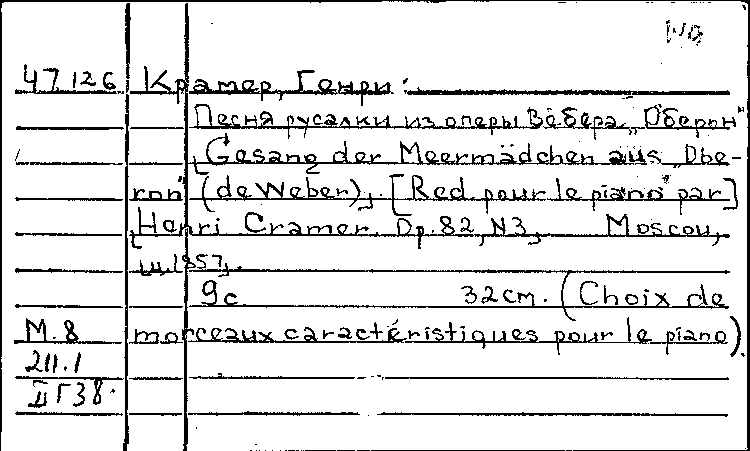 47.126 Крамер, Генри:
Песня русалки из оперы Вебера „Оберон“
[Gesang der Meermädchen aus „Obe-
ron“ (de Weber)]. [Red. pour le piano par]
[Henri Cramer. Op. 82, N3], Moscou,
ц.1857].
9с 32см. (Choix de
М.8 morceaux caractéristiques pour le piano).
211.1
II Г38.